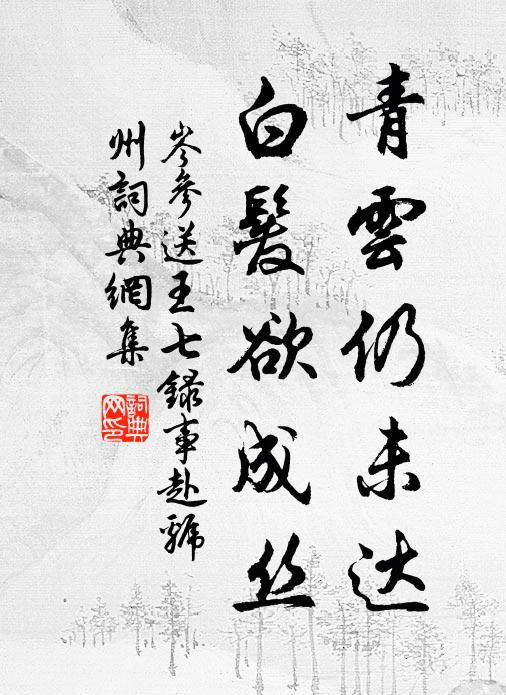 青雲仍未达
白髮欲成丝
岑參送王七録事赴虢
州詞典網集
詞典
网印